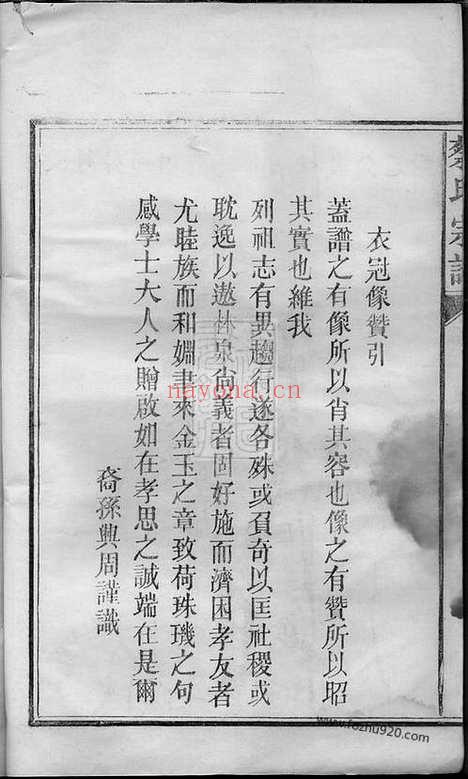 衣冠像贊引
蓋譜之有像所以肖其容也像之有贊所以昭
其實也維我
列祖志有異趨行遂各殊或負奇以匡社稷或
耽逸以遨林泉尙義者固好施而濟困孝友者
尤睦族而和婣書來金玉之章致荷珠璣之句
感學士大人之贈啟如在孝思之誠端在是爾
裔孫興周謹識
氏宗譜
nayona.cn
www.fozhu920.com